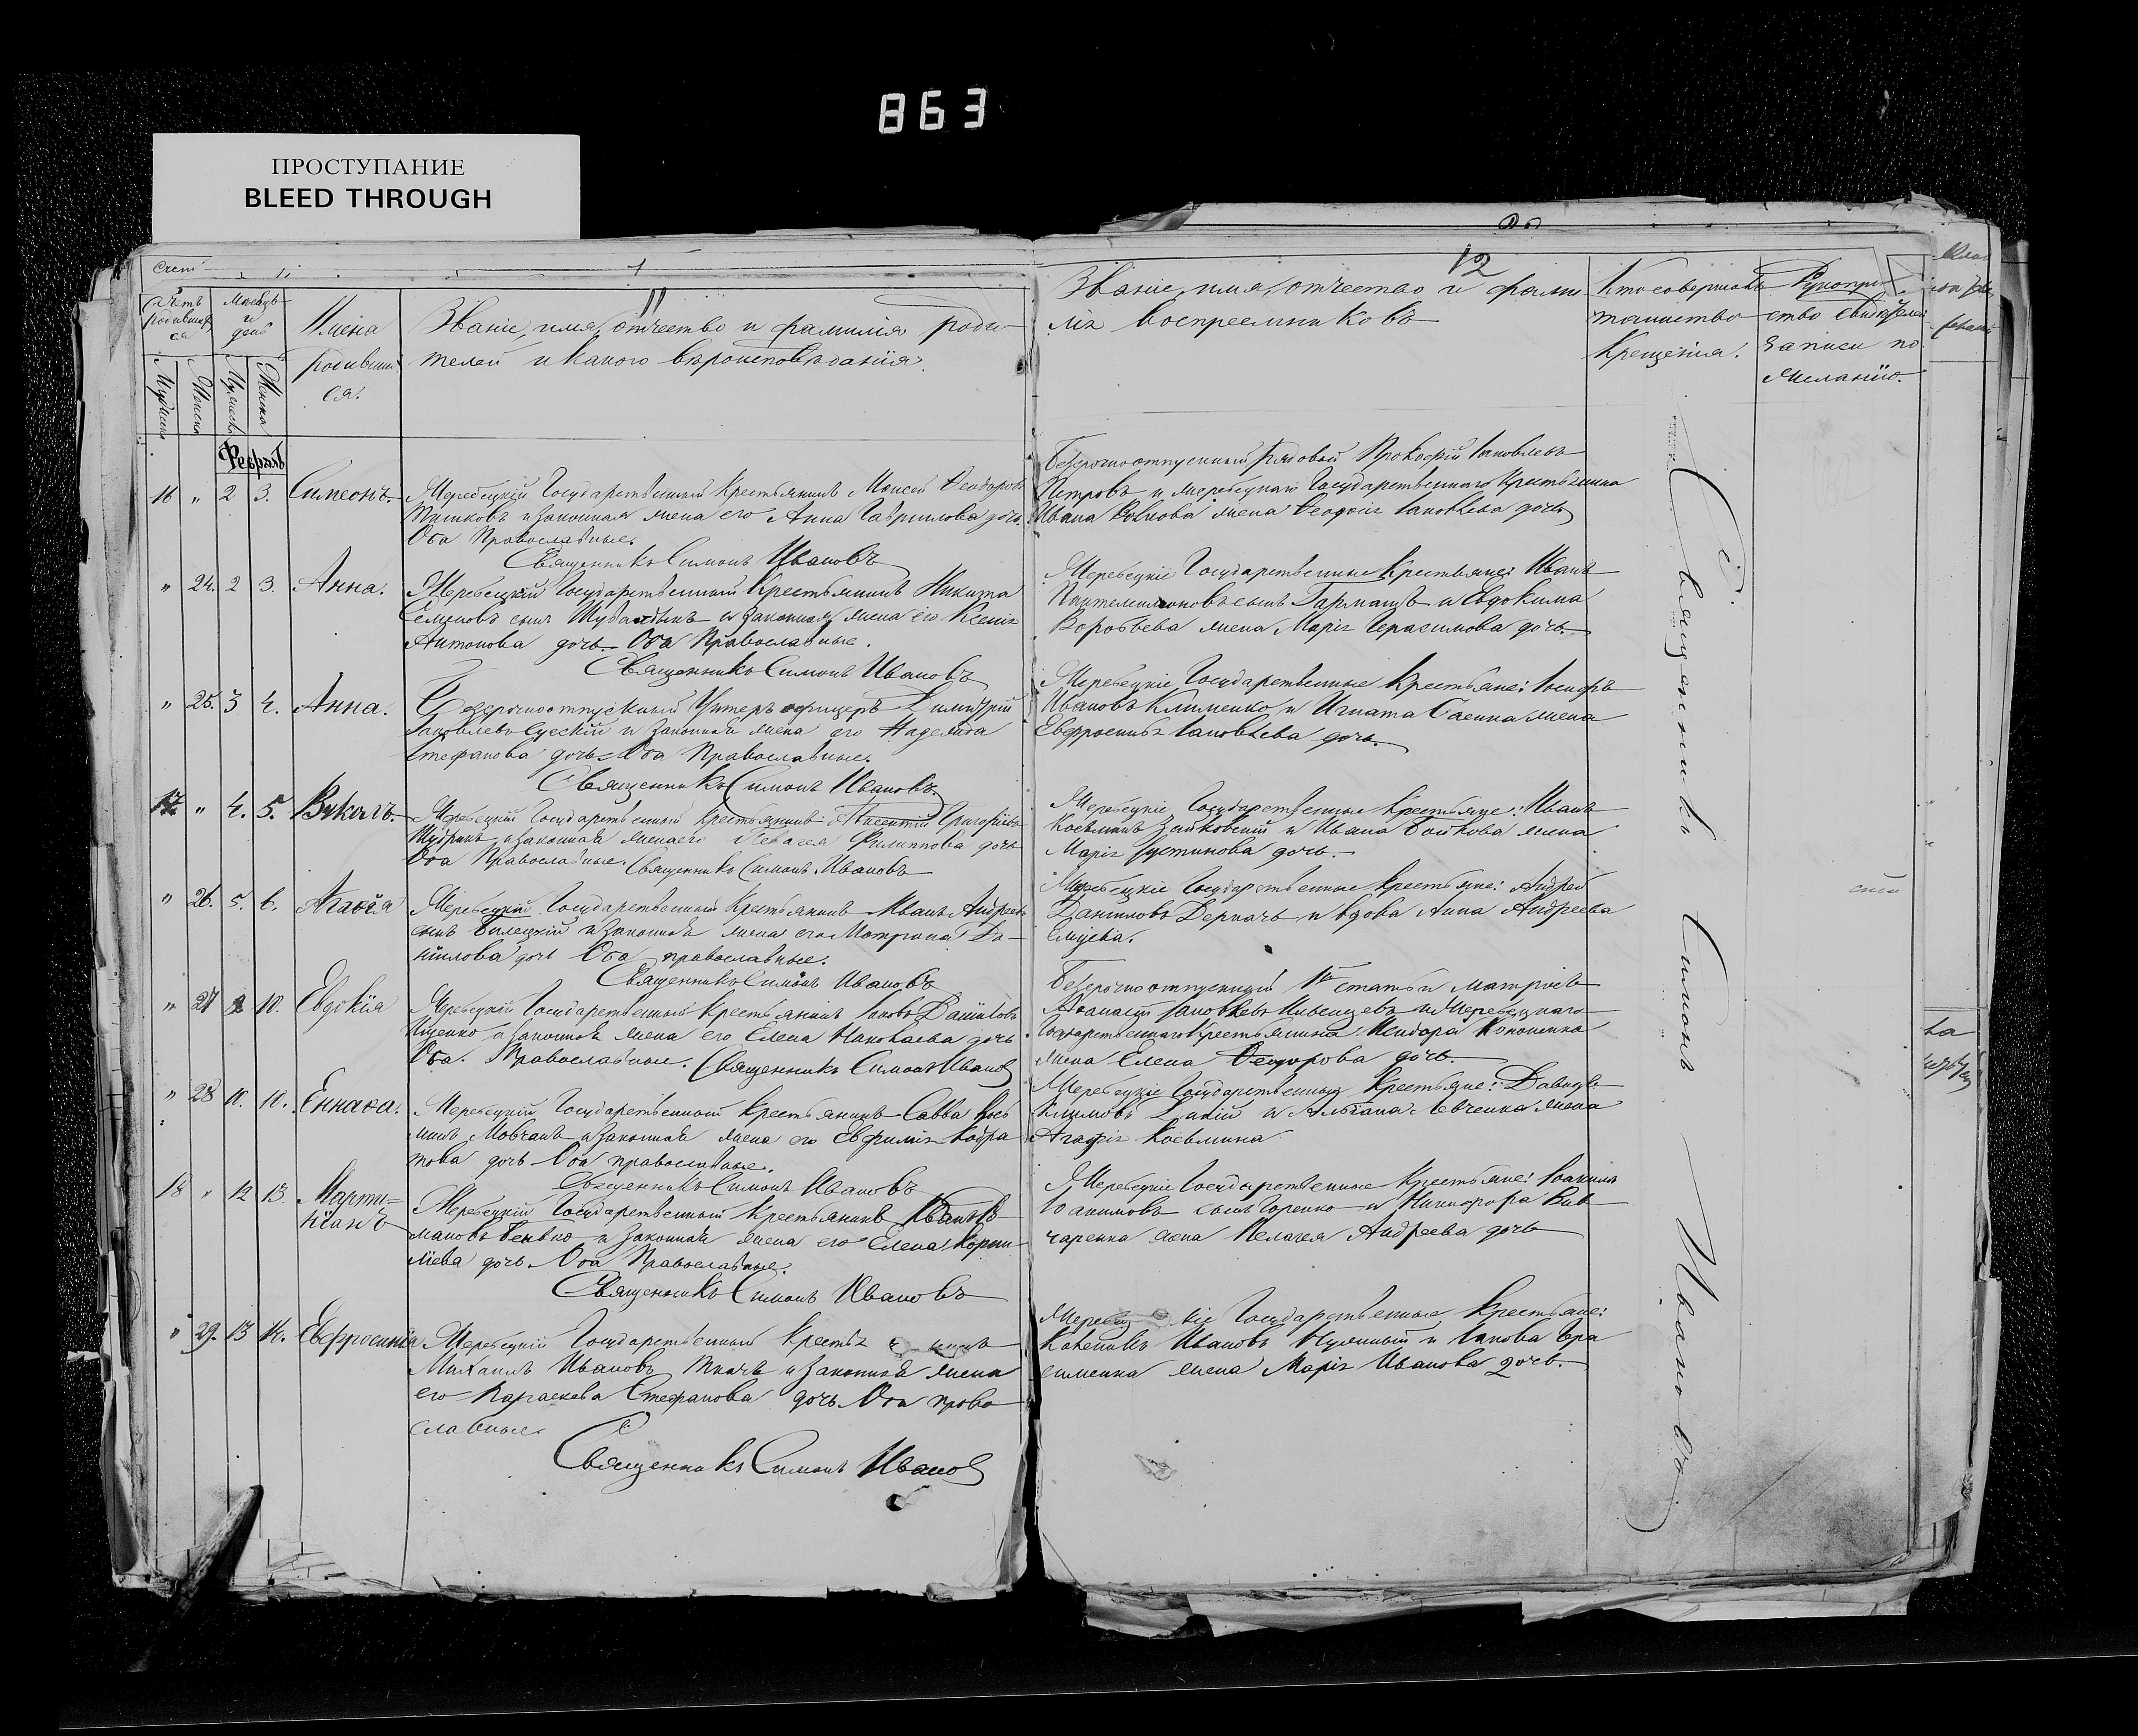 863
ПРОСТУПАНИЕ
BLEED THROUGH
Счетъ родившихся
Мѣсяцъ и день
Имена родивших ся.
11
Званіе, имя, отчество и фамилія роди-
телей и какого вѣроисповѣданія.
12
Званіе, имя, отчество и фами
лія воспреемниковъ
Кто совершалъ
таинство
Крещенія.
Рукопри
ство свидѣтелей
записи по
желанію.
Февраль
16 " 2 3. Симеонъ.
Жеребецкій Государственный Крестьянинъ Моисей Ѳеодоровъ
и законная жена его Анна Гаврилова дочь.
Оба Православные.
Священникъ Симонъ Ивановъ
Безсрочноотпускный Рядовый Прокофій Іаковлевъ
Петровъ и жеребецкаго Государственнаго Крестьянина
Ивана Волкова жена Ѳеодосія Іаковлева дочь
" 24. 2 3. Анна.
Жеребецкій Государственный Крестьянинъ Никита
Семеновъ сынъ и законная жена его Ксенія
Антонова дочь. Оба Православные.
Священникъ Симонъ Ивановъ
Жеребецкіе Государственные Крестьяне: Иванъ
Пантелеимоновъ сынъ Гармашъ и Евдокима
Воробьева жена Марія Герасимова дочь.
" 25. 3 4. Анна.
Безсрочноотпускный Унтеръ офицеръ Димитрій
Іаковлевъ и законная жена его Надежда
Стефанова дочь Оба Православные.
Священникъ Симонъ Ивановъ.
Жеребецкіе Государственные Крестьяне: Іосифъ
Ивановъ Клименко и Игната Саенка жена
Евфросинія Іаковлева дочь.
17 " 4. 5. Вуколъ.
Жеребецкій Государственный Крестьянинъ Григорьевъ
и законная жена его Пелагея Филиппова дочь
Оба Православные. Священникъ Симонъ Ивановъ
Жеребецкіе Государственные Крестьяне: Иванъ
Косьминъ Зайковскій и Ивана Бойкова жена
Марія Іустинова дочь.
" 26. 5. 6. Агаѳія
Жеребецкій Государственный Крестьянинъ Иванъ Андреевъ
сынъ Билецкій и законная жена его Матрона Да-
ніилова дочь Оба православные.
Священникъ Симонъ Ивановъ
Жеребецкіе Государственные Крестьяне: Андрей
Даниловъ Деркачъ и вдова Анна Андреева
" 27 10. Евдокія
Жеребецкій Государственный Крестьянинъ Іаковъ Даніиловъ
Ищенко и законная жена его Елена Николаева дочь
Оба Православные. Священникъ Симонъ Ивановъ
Безсрочноотпускный 1й статьи матросъ
Аѳанасій Іаковлевъ и Жеребецкаго
Государственнаго Крестьянина Исидора Кононенка
жена Елена Ѳеодорова дочь.
" 28 10. 10. Еннаѳа.
Жеребецкій Государственный Крестьянинъ Савва Кось
минъ Мовчанъ и законная жена его Евфимія Кодра
това дочь Оба православные.
Священникъ Симонъ Ивановъ
Жеребецкіе Государственные Крестьяне: Давидъ
Климовъ и Левченка жена
Агафія Косьмина
18 " 12 13. Марти=
ніанъ
Жеребецкій Государственный Крестьянинъ
мановъ и законная жена его Елена Корни-
ліева дочь Оба Православные.
Священникъ Симонъ Ивановъ
Жеребецкіе Государственные Крестьяне: Іоакимъ
Іоакимовъ сынъ Горенко и Никифора Вив
чаренка жена Пелагея Андреева дочь
" 29. 13 14. Евфросинія
Жеребецкій Государственный Крестья нинъ
Михаилъ Ивановъ Ткачъ и законная жена
его Параскева Стефанова дочь. Оба право
славные.
Священникъ Симонъ Ивановъ
Жеребец кіе Государственные Крестьяне:
Ивановъ и Іакова Гера
сименка жена Марія Иванова дочь.
Священникъ Симонъ Ивановъ